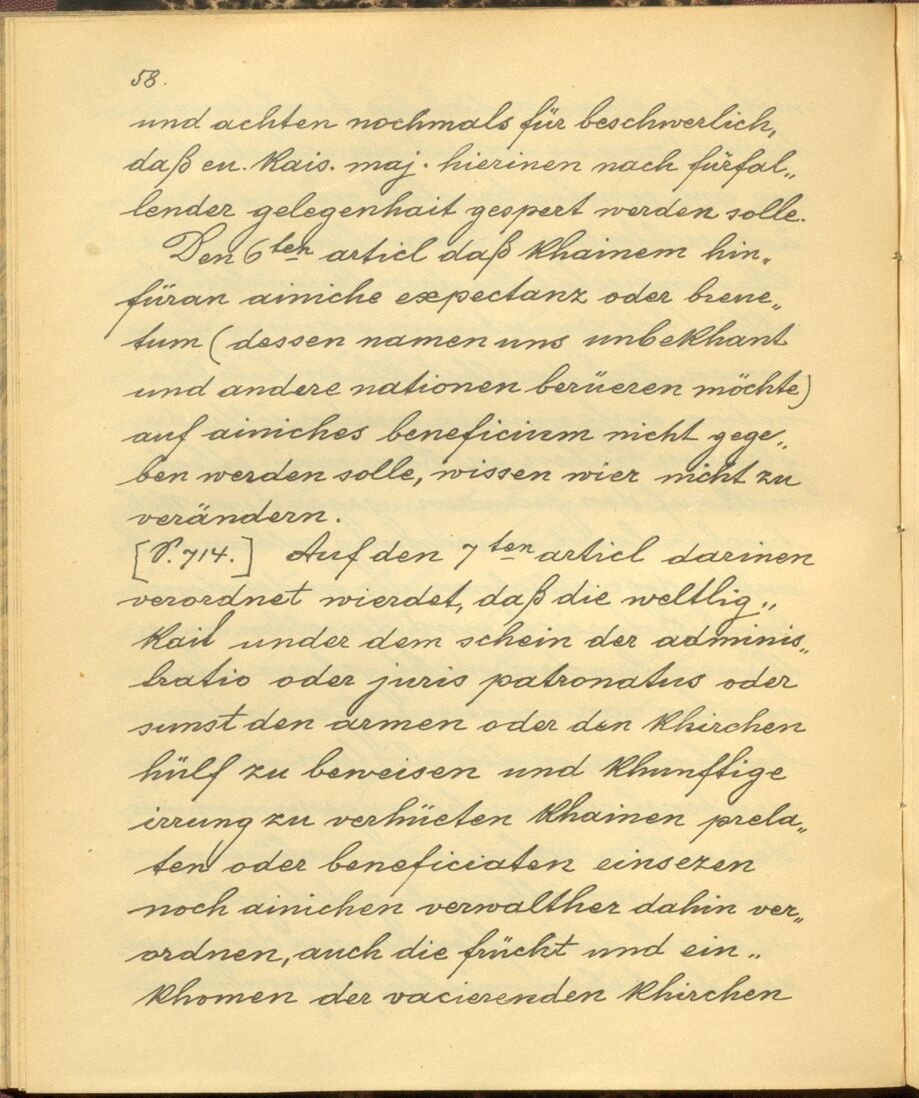 58.
und achten nochmals für beschwerlich,
daß eu. Kais. maj. hierinen nach fürfal„
lender gelegenhait gespert werden solle.
Den 6ten articl daß khainem hin„
füran ainiche expectanz oder brene„
tum (dessen namen uns unbekhant
und andere nationen berüeren möchte)
auf ainiches beneficium nicht gege„
ben werden solle, wissen wier nicht zu
verändern.
[P. 714.] Auf den 7ten articl darinen
verordnet wierdet, daß die weltlig„
kait under dem schein der adminis„
tratio oder juris patronatus oder
sunst den armen oder den khirchen
hülf zu beweisen und khunftige
irrung zu verhüeten khainen prela„
ten oder beneficiaten einsezen
noch ainichen verwalther dahin ver„
ordnen, auch die frücht und ein„
khomen der vacierenden khirchen